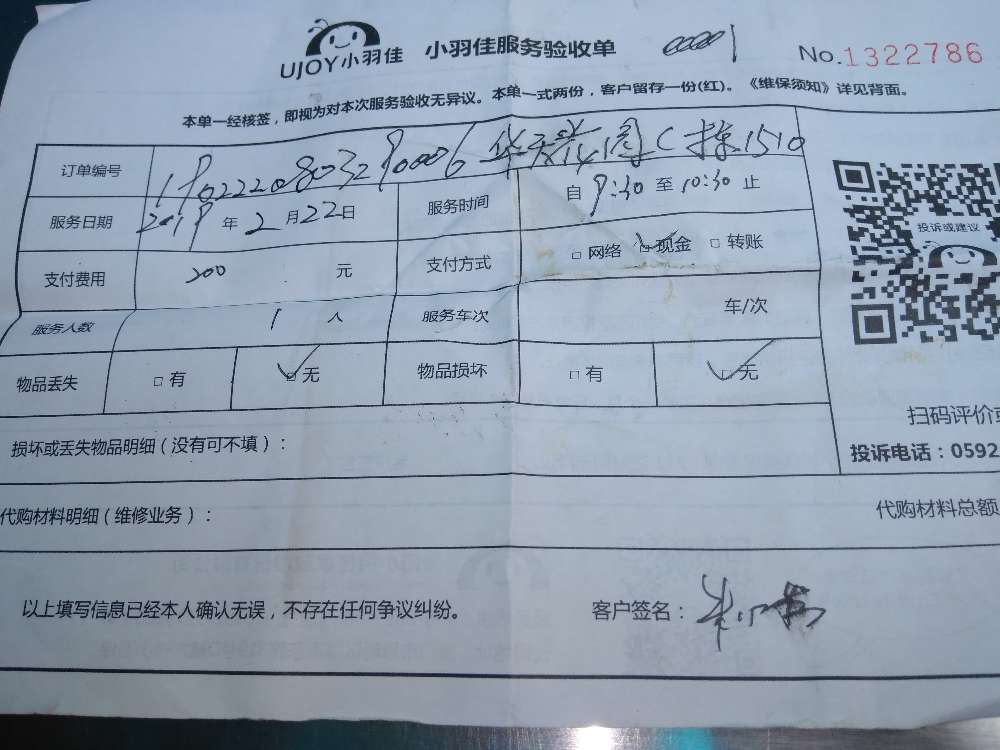 UJOY小羽佳 小羽佳服务验收单 00001 No.1322786
本单一经核签，即视为对本次服务验收无异议。本单一式两份，客户留存一份(红)。《维保须知》详见背面。
订单编号 C栋1510
服务日期 2019年2月22日 服务时间 自9:30至10:30止
投诉或建议
支付费用 200 元 支付方式 □网络 □现金 □转账
服务人数 1 人 服务车次 车/次
物品丢失 □有 □无 物品损坏 □有 □无
扫码评价或
损坏或丢失物品明细（没有可不填）：
投诉电话：0592
代购材料明细（维修业务）： 代购材料总额
以上填写信息已经本人确认无误，不存在任何争议纠纷。 客户签名：